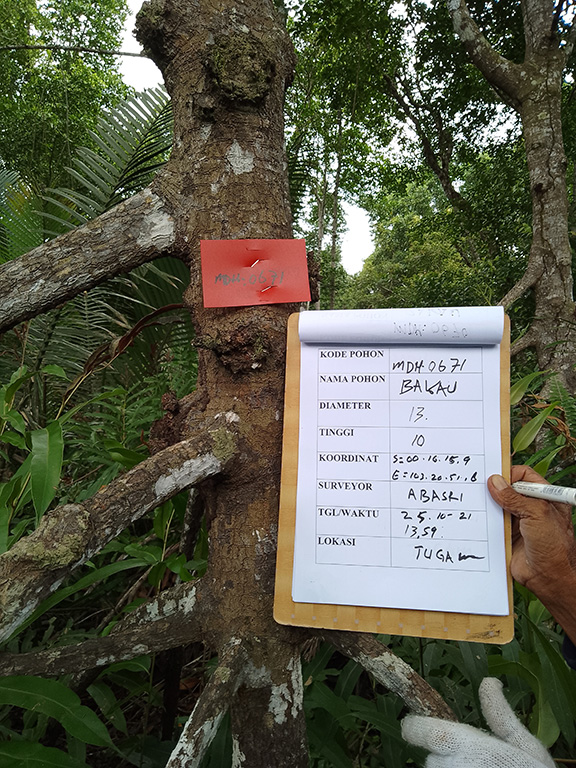 MDH.0671
KODE POHON MDH.0671
NAMA POHON BAKAU
DIAMETER 13.
TINGGI 10
KOORDINAT S=00.16.15.9
E=103.20.51.8
SURVEYOR ABASRI
TGL/WAKTU 25.10-21
13,59.
LOKASI TUGA